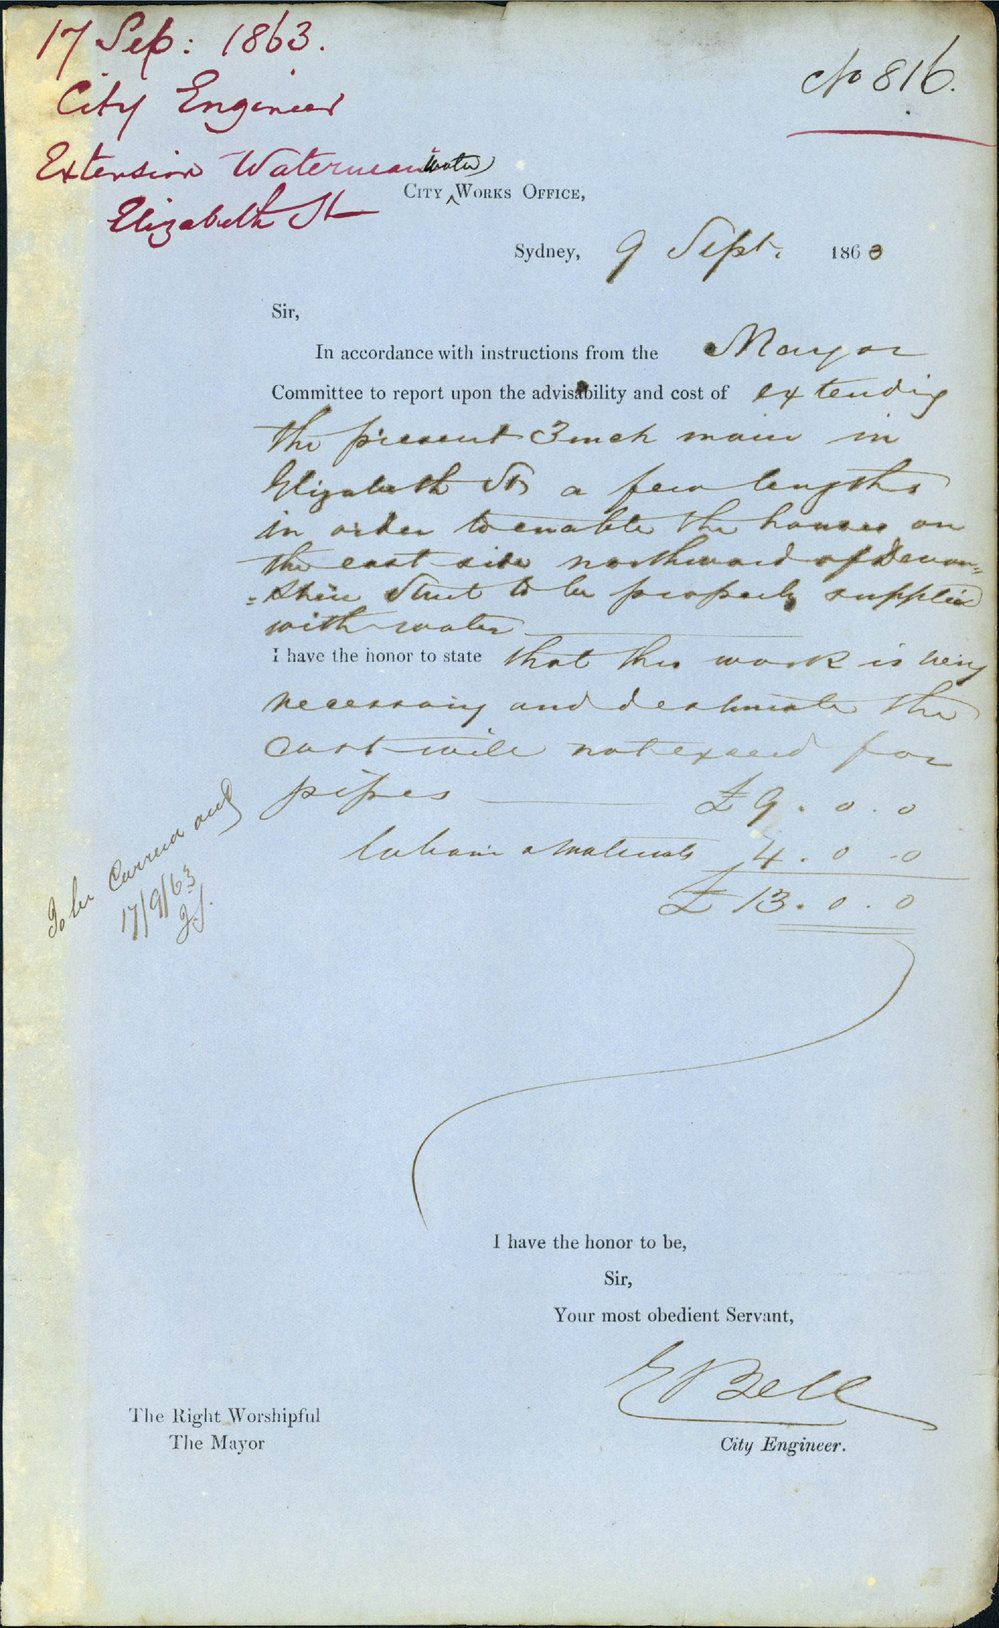 17 Sep: 1863.
City Engineer
Extension Watermain
Elizabeth St
No 816.
Water
City Works Office,
Sydney, 9 Sept. 1863
Sir,
In accordance with instructions from the Mayor
Committee to report upon the advisability and cost of extending
the present 3 inch main in
Elizabeth St a few lengths
in order to enable the houses on
the east side northward of Devon=
=shire Street to be properly supplied
with water
I have the honor to state that this work is very
necessary and estimate the
cost will not exceed for
pipes £9.0.0
labour & Materials 4.0.0
£13.0.0
To be Carried out
17/9/63
I have the honor to be,
Sir,
Your most obedient Servant,
E Bell
City Engineer.
The Right Worshipful
The Mayor